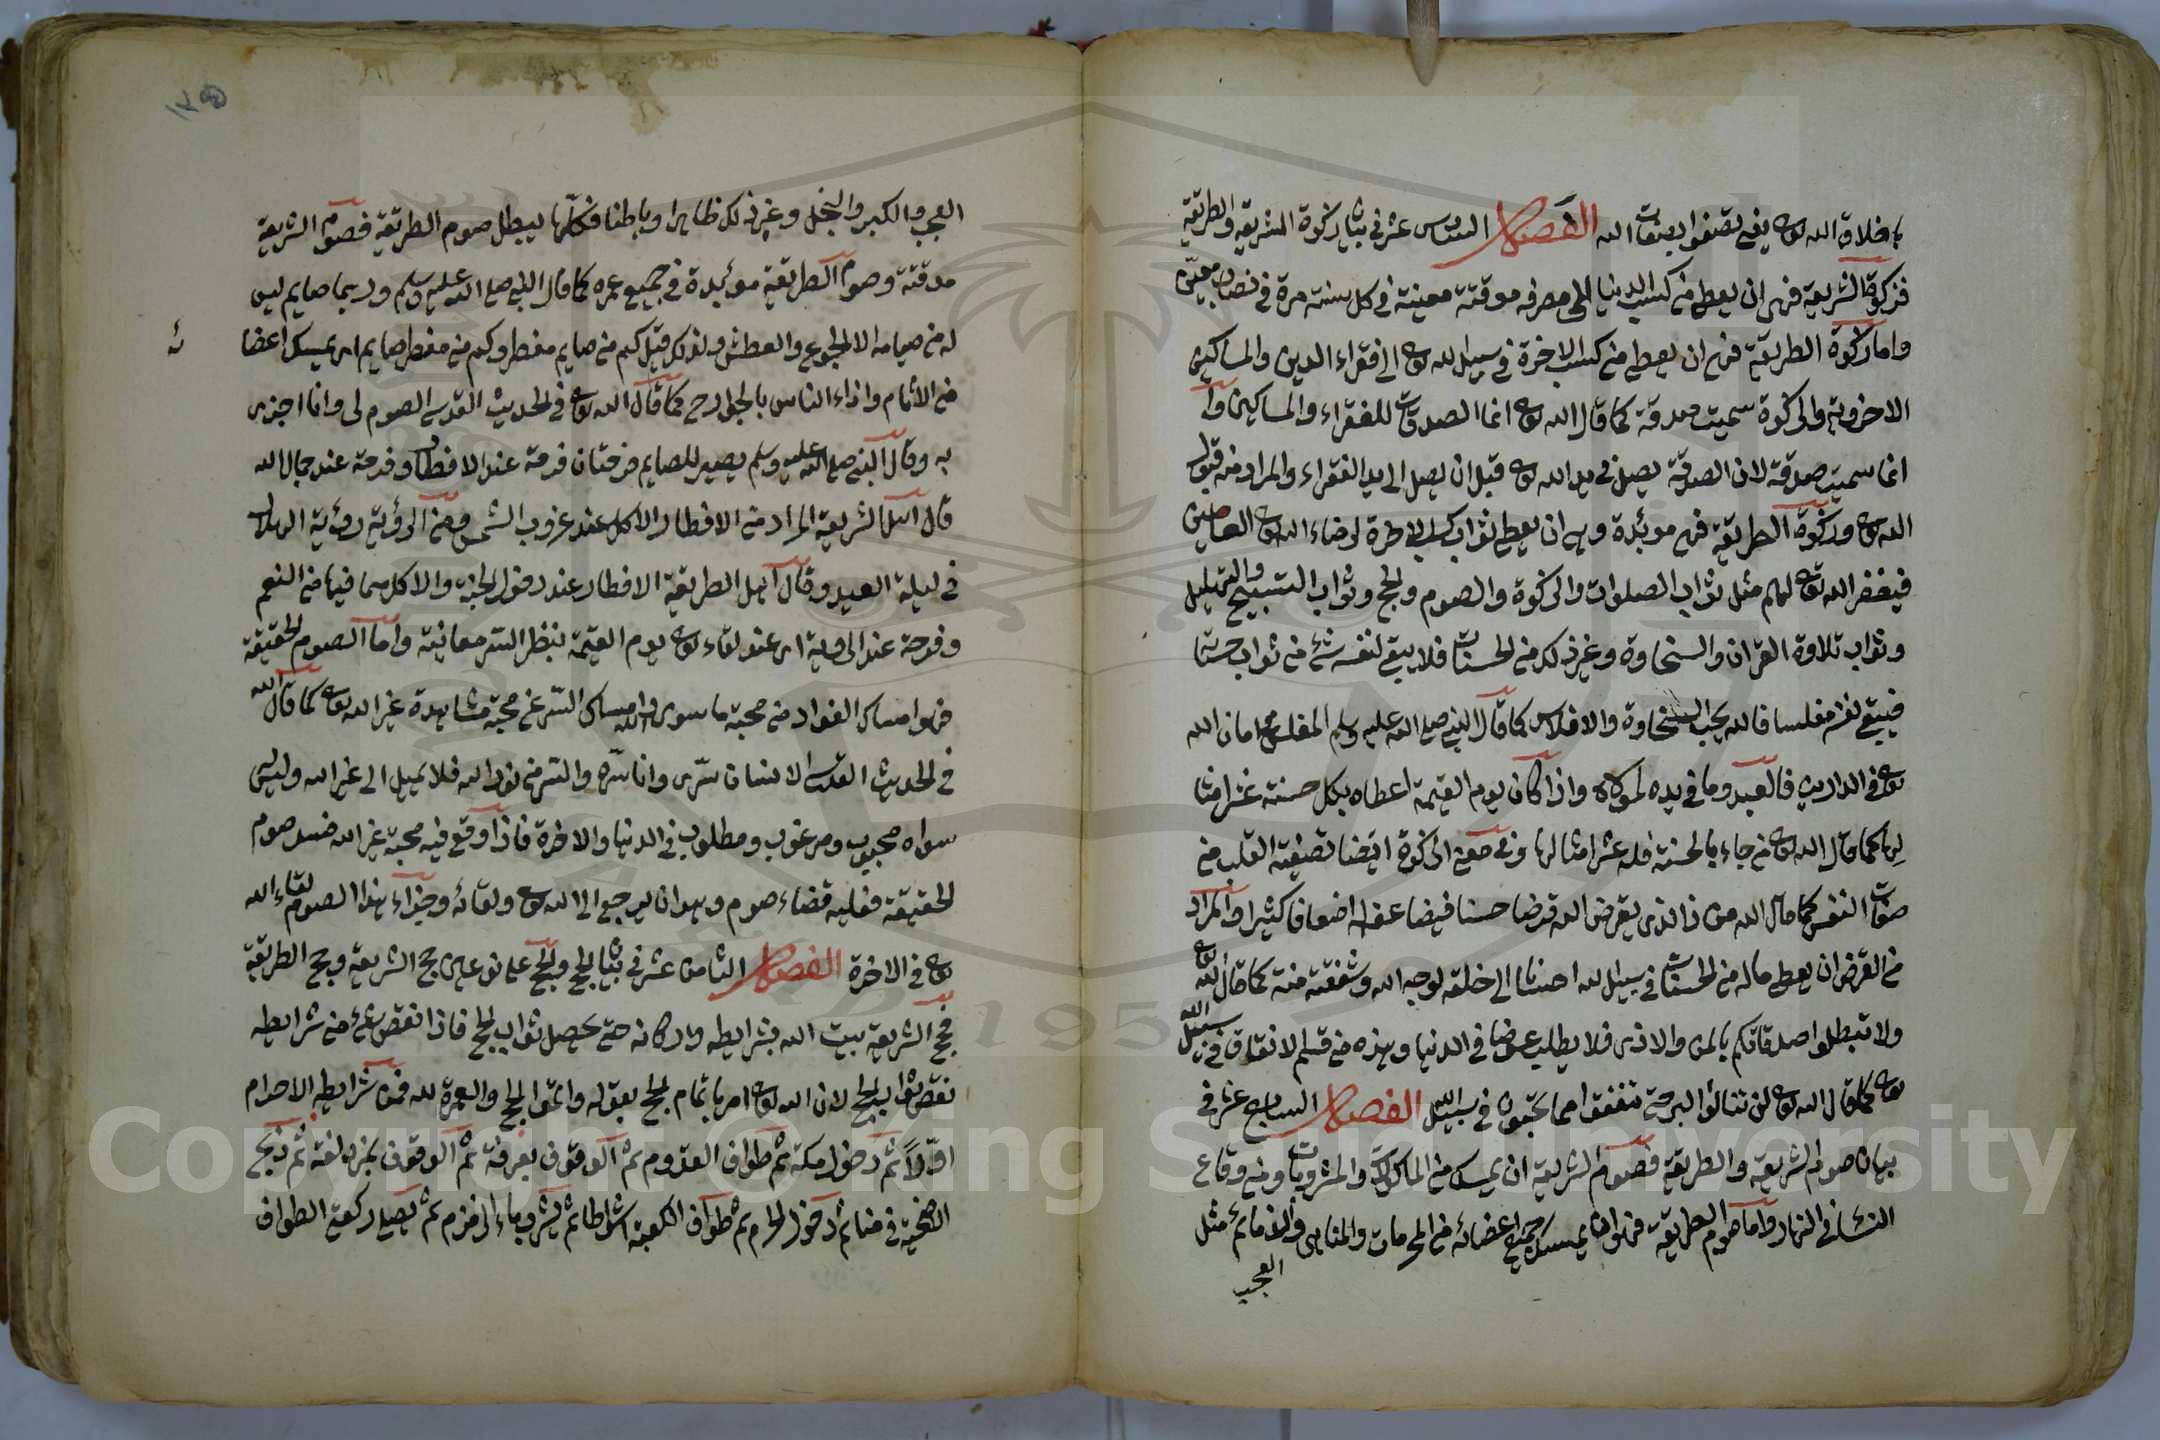 باخلاق الله تعا يعنى تصفوا بصفات الله الفصل السادس عشر فى بيان زكوة الشريعة والطريقة
فزكوة الشريعة فهى ان يعطى من كسب الدنيا الى مصرفه موقتة معينة فى كل سنة مرة فى نصاب معين
واما زكوة الطريقة فهى ان يعطى من كسب الاخرة فى سبيل الله تعا الى فقراء الدين والمساكين
الاخروية والزكوة سميت صدقة كما قال الله تعا انما الصدقات للفقراء والمساكين وا
انما سميت صدقة لان الصدقة يصل فى يد الله تعا قبل ان يصل الى يد الفقراء والمراد منه قبول
الله تعا وزكوة الطريقة فهى مؤبدة وهى ان يعطى ثواب كسب الاخرة لرضاء الله تعا العاصين
فيغفر الله تعا لهم مثل ثواب الصلوات والزكوة والصوم والحج وثواب التسبيح والتهليل
وثواب تلاوة القران والسخاوة وغير ذلك من الحسنات فلا يبقى لنفسه شئ من ثواب حسناته
فيبقى نفسه مفلسا فالله يحب السخاوة والافلاس كما قال النبى صلى الله عليه وسلم المفلس فى امان الله
تعا فى الدارين فالعبد وما فى يده لمولاه واذا كان يوم القيمة اعطاه بكل حسنة عشر امثا
لها كما قال الله تعا من جاء بالحسنة فله عشر امثالها وفى معنى الزكوة ايضا تصفية القلب من
صفات النفس كما قال الله من ذا الذى يقرض الله قرضا حسنا فيضاعفه له اضعافا كثيرا والمراد
من القرض ان يعطى ماله من الحسنات فى سبيل الله احسانا الى خلقه لوجه الله وشفقة منه كما قال الله تعا
ولا تبطلوا صدقاتكم بالمن والاذى فلا يطلب عوضا فى الدنيا وهذه من قسم الانفاق فى سبيل الله
تعا كما قال الله تعا لن تنالوا البر حتى تنفقوا مما تحبون فى سبيل الله الفصل السابع عشر فى
بيان صوم الشريعة والطريقة فصوم الشريعة ان يمسك من الماكولات والمشروبات ومن وقاع
النساء فى النهار واما صوم الطريقة فهو ان يمسك جميع اعضائه من المحرمات والمناهى والذمائم مثل
العجب
١٢٥
العجب والكبر والبخل وغير ذلك ظاهرا وباطنا فكلها يبطل صوم الطريقة فصوم الشريعة
موقتة وصوم الطريقة مؤبدة فى جميع عمره كما قال النبى صلى الله عليه وسلم ورب صايم ليس
له من صيامه الا الجوع والعطش ولذلك قيل كم من صايم مفطر وكم من مفطر صايم اى يمسك اعضا
ئه
من الاثام واذاء الناس بالجوارح كما قال الله تعا فى الحديث القدسى الصوم لى وانا اجزى
به وقال النبى صلى الله عليه وسلم يصير للصايم فرحتان فرحة عند الافطار وفرحة عند جمال الله
قال اهل الشريعة المراد من الافطار الاكل عند غروب الشمس ومن الرؤية رؤية الهلال
فى ليلة العيد وقال اهل الطريقة الافطار عند دخول الجنة والاكل مما فيها من النعيم
وفرحة عند الرؤية اى عند لقاء تعا يوم القيمة بنظر السر معاينة واما الصوم الحقيقة
فهو امساك الفؤاد من محبة ما سوى الله وامساك السر عن محبة مشاهدة غير الله تعا كما قال الله
فى الحديث القدسى الانسان سرى وانا سره والسر من نور الله فلا يميل الى غير الله وليس
سواه محبوب ومرغوب ومطلوب فى الدنيا والاخرة فاذا وقع فيه محبة غير الله فسد صوم
الحقيقة فعليه قضاء صوم وهو ان يرجع الى الله تعا ولقائه وجزاء هذا الصوم لقاء الله
تعا فى الاخرة الفصل الثامن عشر فى بيان الحج والحج على نوعين حج الشريعة وحج الطريقة
فحج الشريعة بيت الله بشرايطه واركانه حتى يحصل ثواب الحج فاذا نقص شئ من شرايطه
نقص ثواب الحج لان الله تعا امر باتمام الحج بقوله واتموا الحج والعمرة لله فمن شرايطه الاحرام
اوّلاً ثم دخول مكة ثم طواف القدوم ثم الوقوف بعرفة ثم الوقوف بمزدلفة ثم ذبح
الاضحية فى منا ثم دخول الحرام ثم طواف الكعبة اشواطا ثم يشرب ماء الزمزم ثم يصلى ركعتى الطواف